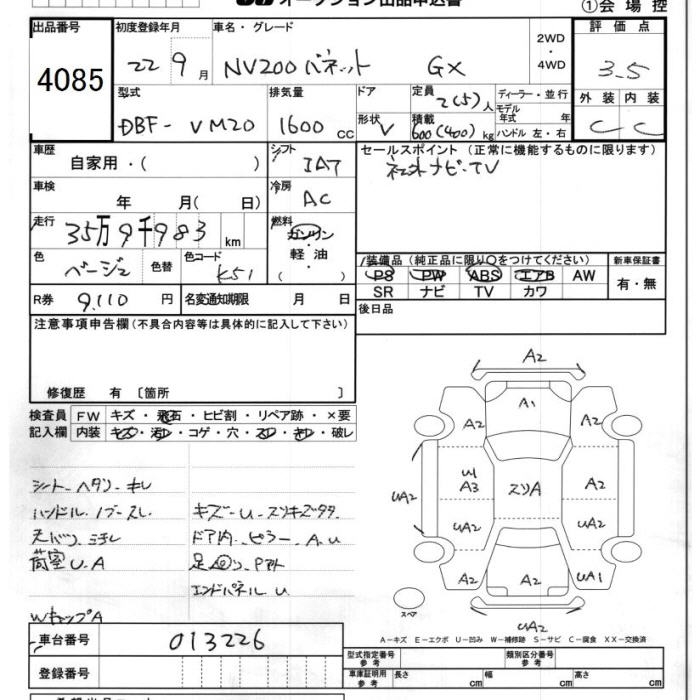 ①会 場 控
出品番号
4085
初度登録年月
22 9 月
車名・グレード
NV200 バネット GX
2WD
・
4WD
評 価 点
3.5
外 装 内 装
C C
型式
DBF- VM20
排気量
1600 cc
ドア
形状 V
定員 2(5) 人
積載 600(400) kg
ディーラー・並行
モデル
年式 年
ハンドル 左・右
車歴
自家用・( )
シフト
IAT
車検
年 月( 日)
冷房
AC
走行
35万9千983 km
燃料
ガソリン
・
軽 油
( )
色
ベージュ
色替
色コード
K51
R券 9,110 円
名変通知期限 月 日
セールスポイント(正常に機能するものに限ります)
社外ナビ・TV
装備品(純正品に限り○をつけてください)
PS PW ABS エアB AW
SR ナビ TV カワ
新車保証書
有・無
後日品
注意事項申告欄(不具合内容等は具体的に記入して下さい)
修復歴 有 〔箇所 〕
検査員 FW キズ・飛石・ヒビ割・リペア跡・×要
記入欄 内装 キズ・汚レ・コゲ・穴・スレ・キレ・破レ
シートヘタリ・キレ
ハンドル ノブ スレ
天バリ ヨゴレ
荷室 U.A
WキャップA
キズー U
ドア内、ピラー A.U
エンドパネル U
A2
A1
A2 A2
U1
A3 スリA A2
UA2 UA2 UA2
A2 A2 UA1
スペア
UA2
A-キズ E-エクボ U-凹み W-補修跡 S-サビ C-腐食 XX-交換済
車台番号 013226
登録番号
型式指定番号
参考
類別区分番号
参考
車庫証明用
参考
長さ cm 幅 cm 高さ cm